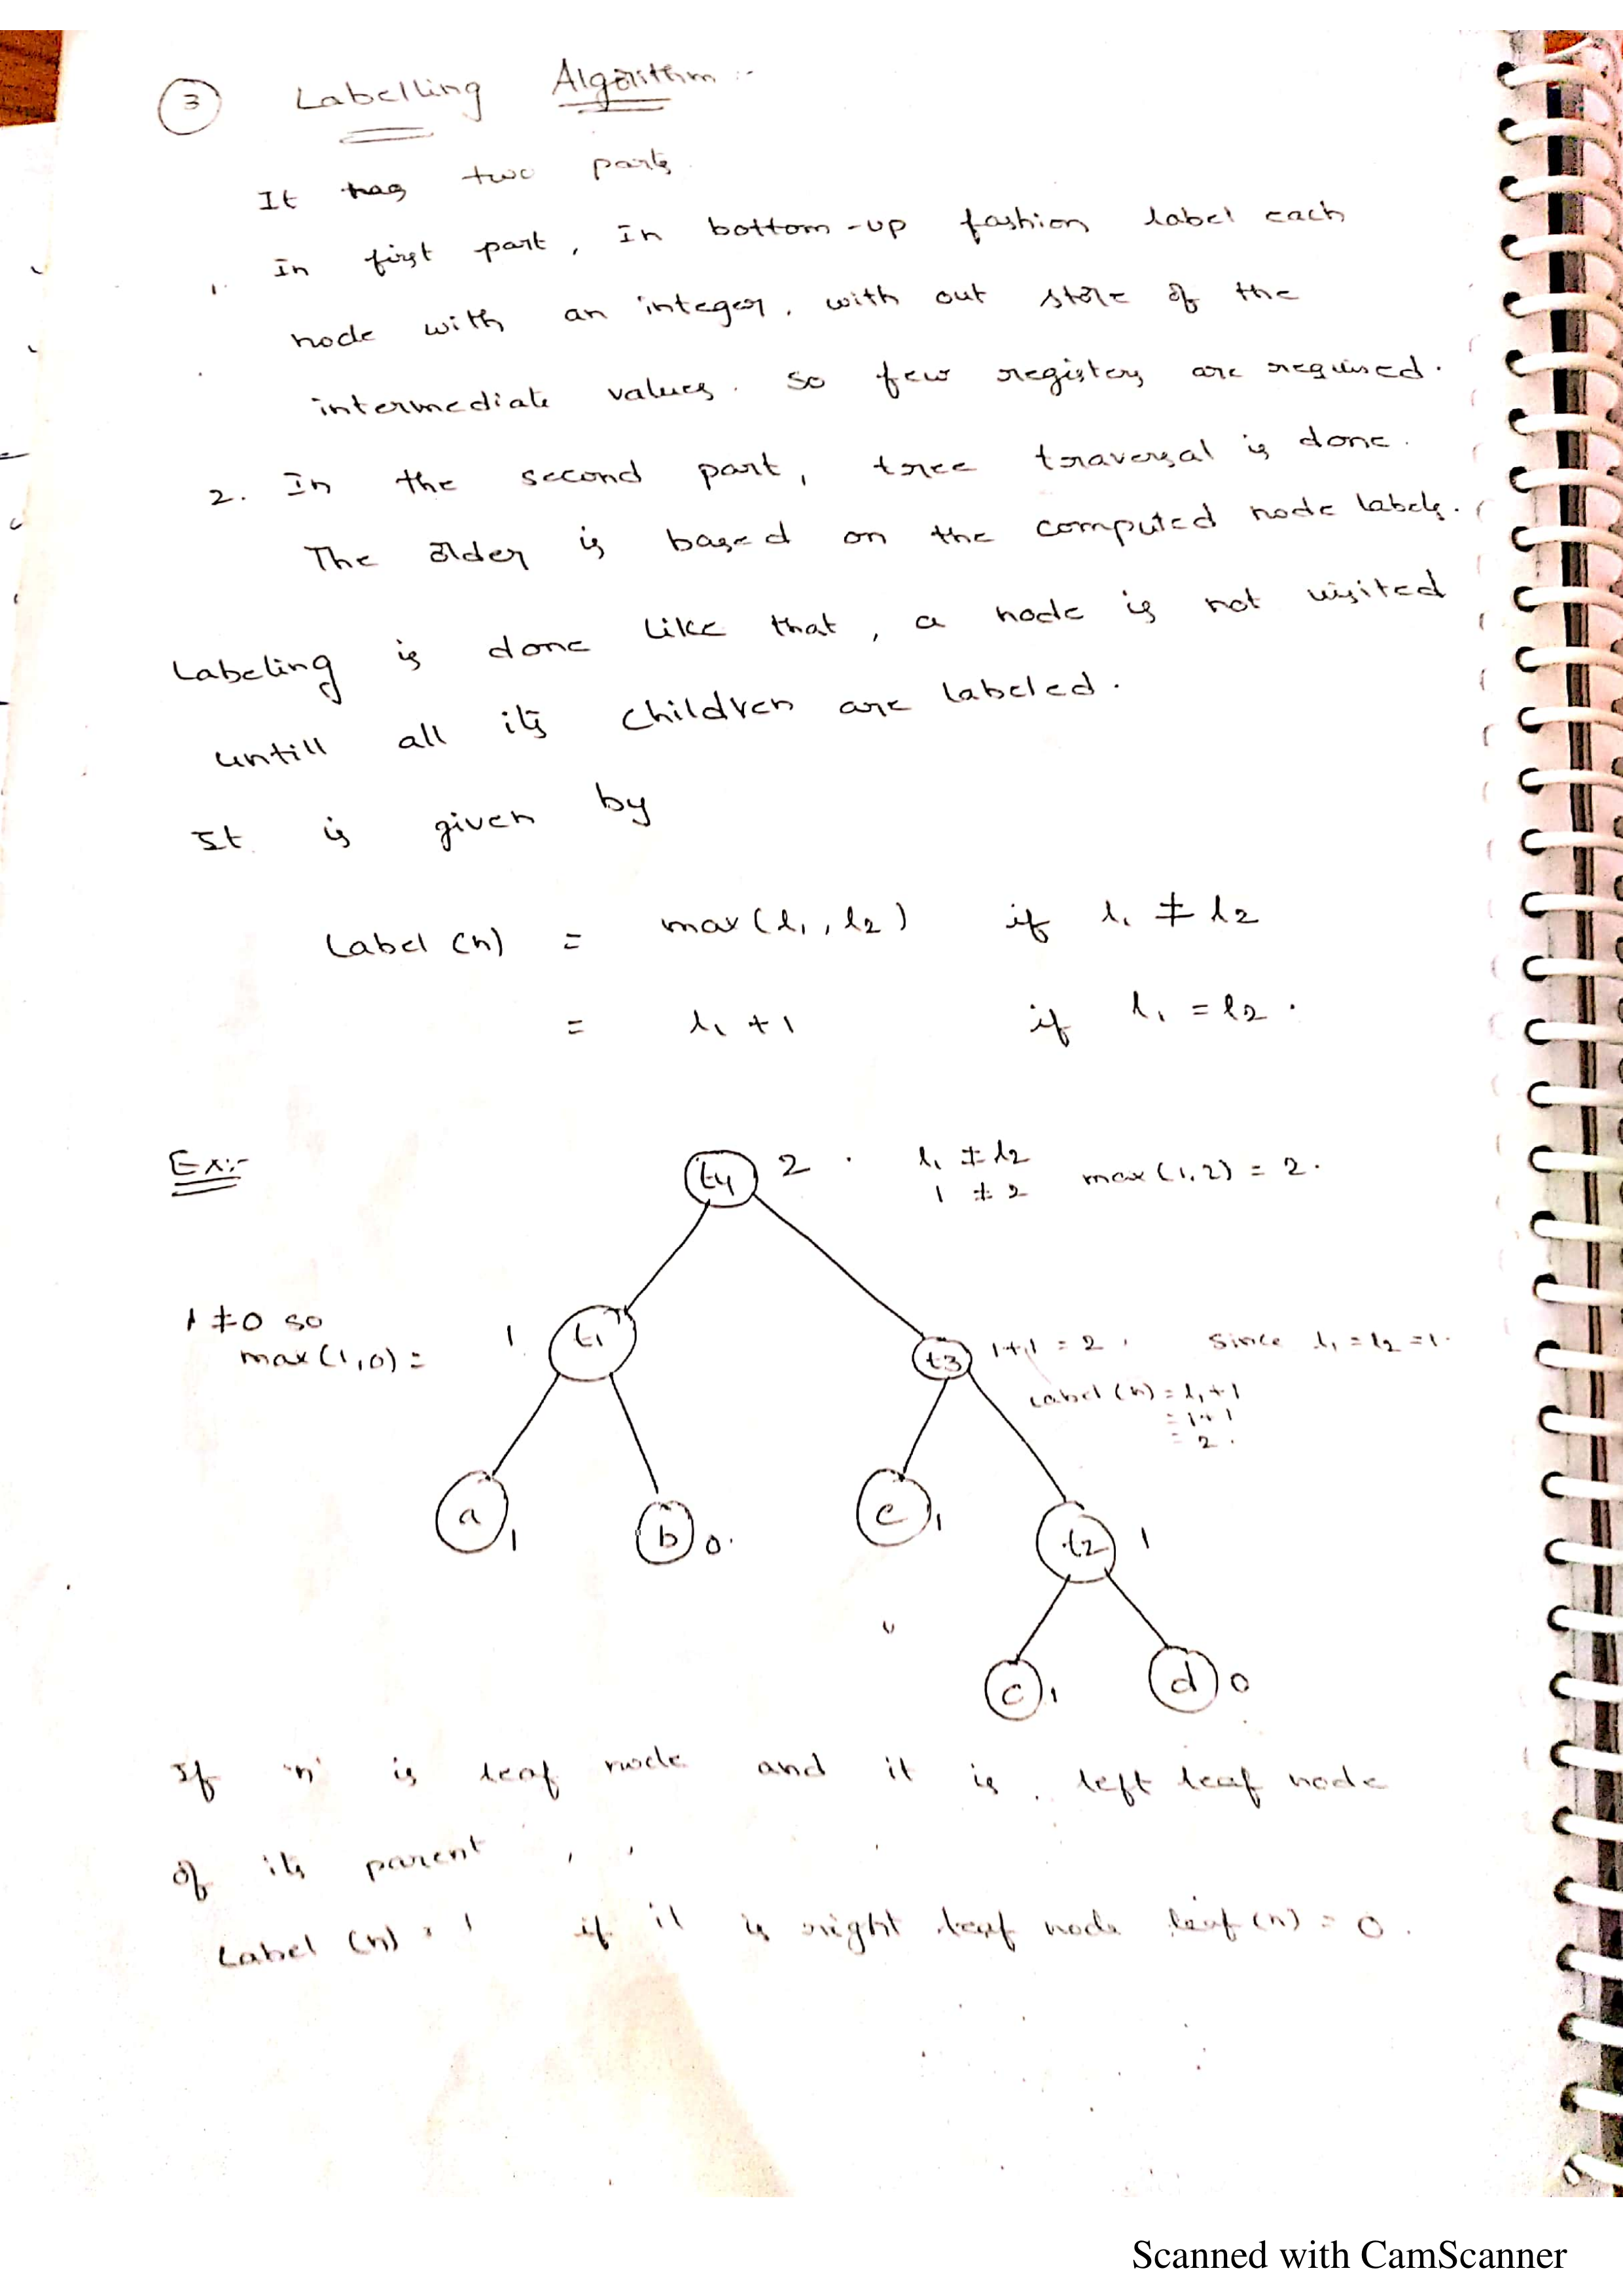 3 Labelling Algorithm :-
It has two parts.
1. In first part, In bottom-up fashion label each
node with an integer, with out store of the
intermediate values. so few registers are required.
2. In the second part, tree traversal is done.
The order is based on the computed node labels.
Labeling is done like that, a node is not visited
untill all its children are labeled.
It is given by
Label (n) = max (l1, l2) if l1 ≠ l2
= l1 + 1 if l1 = l2.
Ex:-
t4 2 . l1 ≠ l2
1 ≠ 2 max (1,2) = 2.
1 ≠ 0 so
max (1,0) = 1 t1
t3 1+1 = 2, Since l1 = l2 = 1.
Label (n) = l1 + 1
= 1+1
= 2.
a 1 b 0. e 1 t2 1
c 1 d 0
If 'n' is leaf node and it is left leaf node
of its parent,
Label (n) = 1 if it is right leaf node leaf (n) = 0.
Scanned with CamScanner